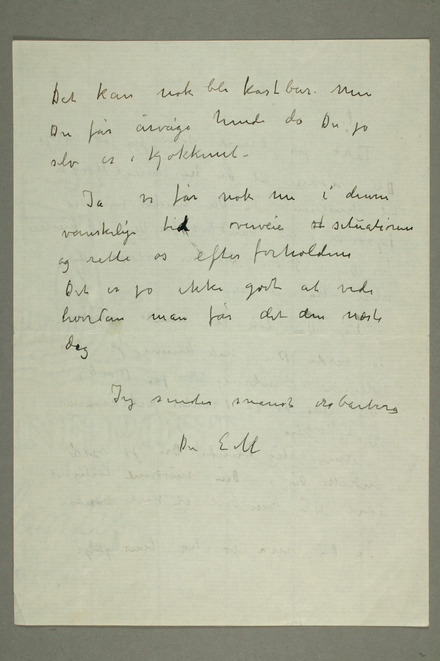 Det kan nok bli kostbar. men
Du får åsvåge hunde da Du jo
selv es i kjøkkenet –
Ja vi får nok nu i denne
vanskelige tid overveie situationen
og rette os efter forholdene
Det es jo ikke godt at vide
hvordan man får det den næste
dag
Jeg sender snarest
Din E M